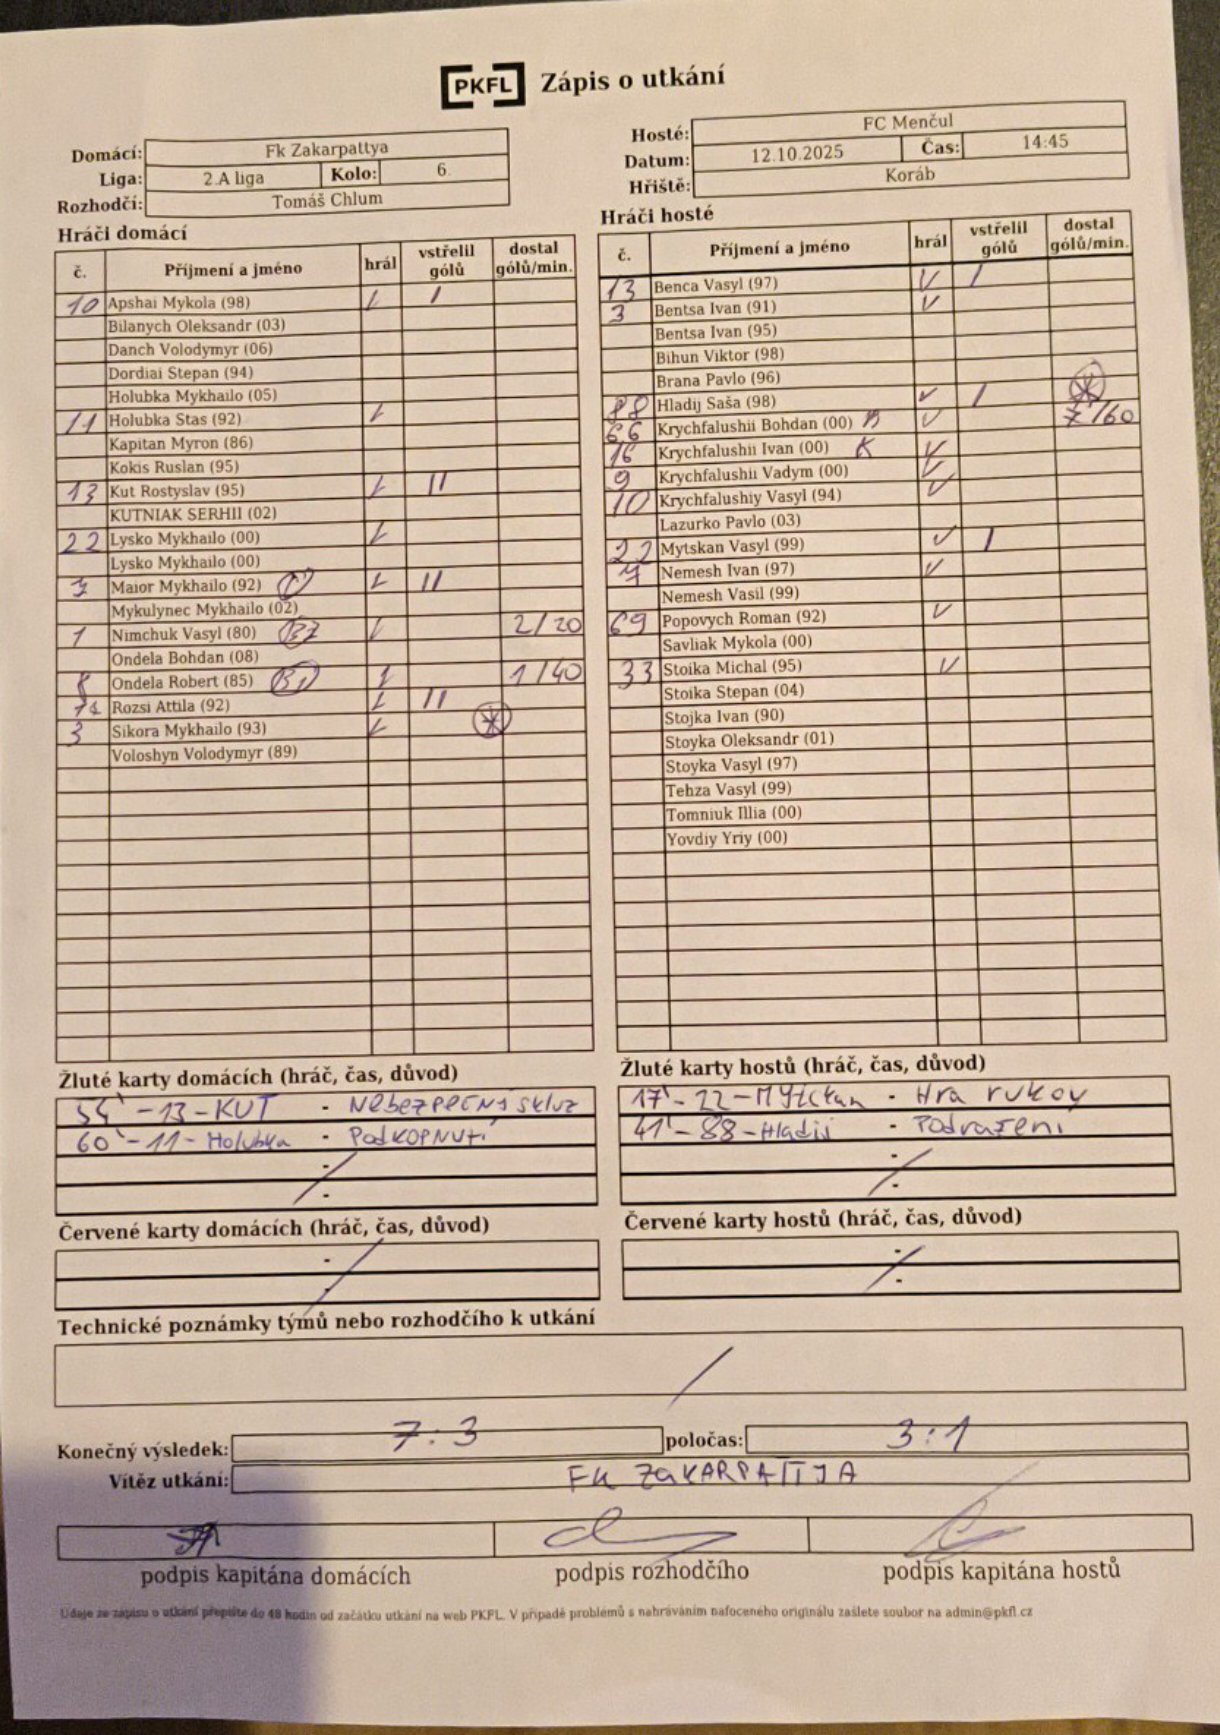 PKFL Zápis o utkání
Domácí: Fk Zakarpattya
Liga: 2.A liga Kolo: 6.
Rozhodčí: Tomáš Chlum
Hosté: FC Menčul
Datum: 12.10.2025 Čas: 14:45
Hřiště: Koráb
Hráči domácí
č. Příjmení a jméno hrál vstřelil gólů dostal gólů/min.
10 Apshai Mykola (98) I
Bilanych Oleksandr (03)
Danch Volodymyr (06)
Dordiai Stepan (94)
Holubka Mykhailo (05)
11 Holubka Stas (92)
Kapitan Myron (86)
Kokis Ruslan (95)
13 Kut Rostyslav (95) II
KUTNIAK SERHII (02)
22 Lysko Mykhailo (00)
Lysko Mykhailo (00)
Maior Mykhailo (92) II
Mykulynec Mykhailo (02)
1 Nimchuk Vasyl (80) B2 2/20
Ondela Bohdan (08)
8 Ondela Robert (85) B1 1/40
Rozsi Attila (92) II
3 Sikora Mykhailo (93)
Voloshyn Volodymyr (89)
Hráči hosté
č. Příjmení a jméno hrál vstřelil gólů dostal gólů/min.
13 Benca Vasyl (97) V I
3 Bentsa Ivan (91) V
Bentsa Ivan (95)
Bihun Viktor (98)
Brana Pavlo (96)
88 Hladij Saša (98) V I
66 Krychfalushii Bohdan (00) B V 7/60
16 Krychfalushii Ivan (00) K V
9 Krychfalushii Vadym (00) V
10 Krychfalushiy Vasyl (94) V
Lazurko Pavlo (03)
22 Mytskan Vasyl (99) V I
7 Nemesh Ivan (97) V
Nemesh Vasil (99)
69 Popovych Roman (92) V
Savliak Mykola (00)
33 Stoika Michal (95) V
Stoika Stepan (04)
Stojka Ivan (90)
Stoyka Oleksandr (01)
Stoyka Vasyl (97)
Tehza Vasyl (99)
Tomniuk Illia (00)
Yovdiy Yriy (00)
Žluté karty domácích (hráč, čas, důvod)
54' - 13 - KUT - Nebezpečný skluz
60' - 11 - Holubka - Podkopnutí
-
-
Žluté karty hostů (hráč, čas, důvod)
17' - 22 - Mytckan - Hra rukou
41' - 88 - Hladij - Podražení
-
-
Červené karty domácích (hráč, čas, důvod)
-
-
Červené karty hostů (hráč, čas, důvod)
-
-
Technické poznámky týmů nebo rozhodčího k utkání
Konečný výsledek: 7:3 poločas: 3:1
Vítěz utkání: FK ZAKARPATTJA
podpis kapitána domácích podpis rozhodčího podpis kapitána hostů
Údaje ze zápisu o utkání přepište do 48 hodin od začátku utkání na web PKFL. V případě problémů s nahráváním nafoceného originálu zašlete soubor na admin@pkfl.cz